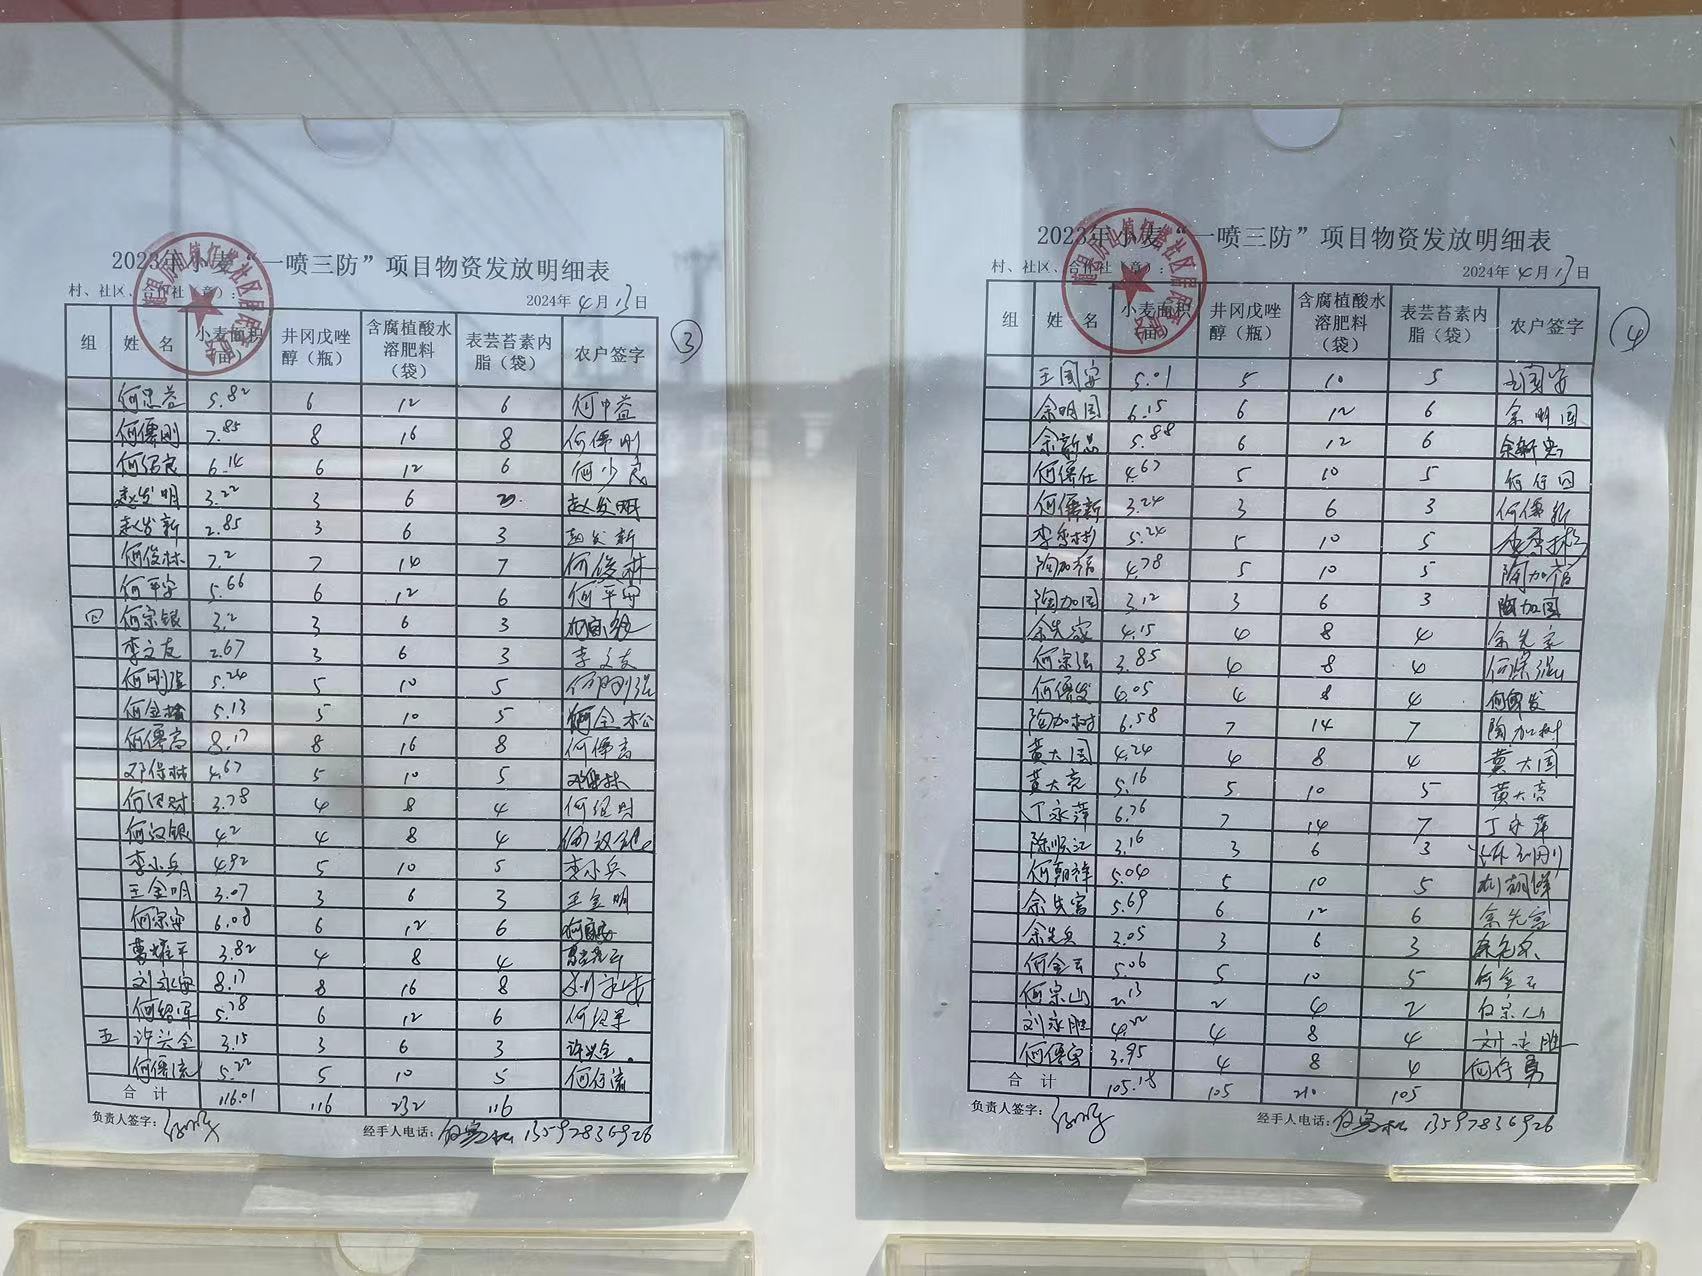 2023年小麦“一喷三防”项目物资发放明细表
村、社区、合作社（章）：
2024年 4 月 13 日
③
组 姓 名 小麦面积（亩） 井冈戊唑醇（瓶） 含腐植酸水溶肥料（袋） 表芸苔素内脂（袋） 农户签字
何忠益 5.82 6 12 6 何中益
何儒刚 7.85 8 16 8 何儒刚
何绍良 6.14 6 12 6 何少良
赵发明 3.22 3 6 3 赵发明
赵发新 2.85 3 6 3 赵发新
何俊林 7.2 7 14 7 何俊林
何平安 5.66 6 12 6 何平安
四 何宗银 3.2 3 6 3
李文友 2.67 3 6 3 李文友
何刚强 5.24 5 10 5 何刚强
何金 5.13 5 10 5 何金松
何儒高 8.17 8 16 8 何儒高
邓保林 4.67 5 10 5 邓保林
何绍财 3.78 4 8 4 何绍财
何汉银 4.2 4 8 4
李小兵 4.92 5 10 5 李小兵
王金明 3.07 3 6 3 王金明
何宗安 6.08 6 12 6
曹耀平 3.82 4 8 4
刘永安 8.17 8 16 8
何绍军 5.78 6 12 6 何绍军
五 许兴全 3.15 3 6 3 许兴全
何儒流 5.22 5 10 5 何行流
合 计 116.01 116 232 116
负责人签字：
经手人电话： 13597836926
2023年小麦“一喷三防”项目物资发放明细表
村、社区、合作社（章）：
2024年 4 月 13 日
④
组 姓 名 小麦面积（亩） 井冈戊唑醇（瓶） 含腐植酸水溶肥料（袋） 表芸苔素内脂（袋） 农户签字
王国安 5.01 5 10 5 王国安
余明国 6.15 6 12 6 余明国
余新忠 5.88 6 12 6 余新忠
何儒仕 4.67 5 10 5
何儒新 3.24 3 6 3 何儒新
李秀彬 5.24 5 10 5
陶加宿 4.78 5 10 5 陶加宿
陶加国 3.12 3 6 3 陶加国
余先家 4.15 4 8 4 余先家
何宗强 3.85 4 8 4 何宗强
何儒发 4.05 4 8 4 何儒发
陶加树 6.58 7 14 7 陶加树
黄大国 4.24 4 8 4 黄大国
黄大亮 5.16 5 10 5 黄大亮
丁永萍 6.76 7 14 7 丁永萍
陈顺江 3.16 3 6 3
何朝祥 5.04 5 10 5
余先富 5.69 6 12 6 余先富
余先兵 3.05 3 6 3
何金玉 5.06 5 10 5 何金玉
何宗山 2.13 2 4 2 何宗山
刘永胜 4.22 4 8 4 刘永胜
何儒勇 3.95 4 8 4 何行勇
合 计 105.18 105 210 105
负责人签字：
经手人电话： 13597836926